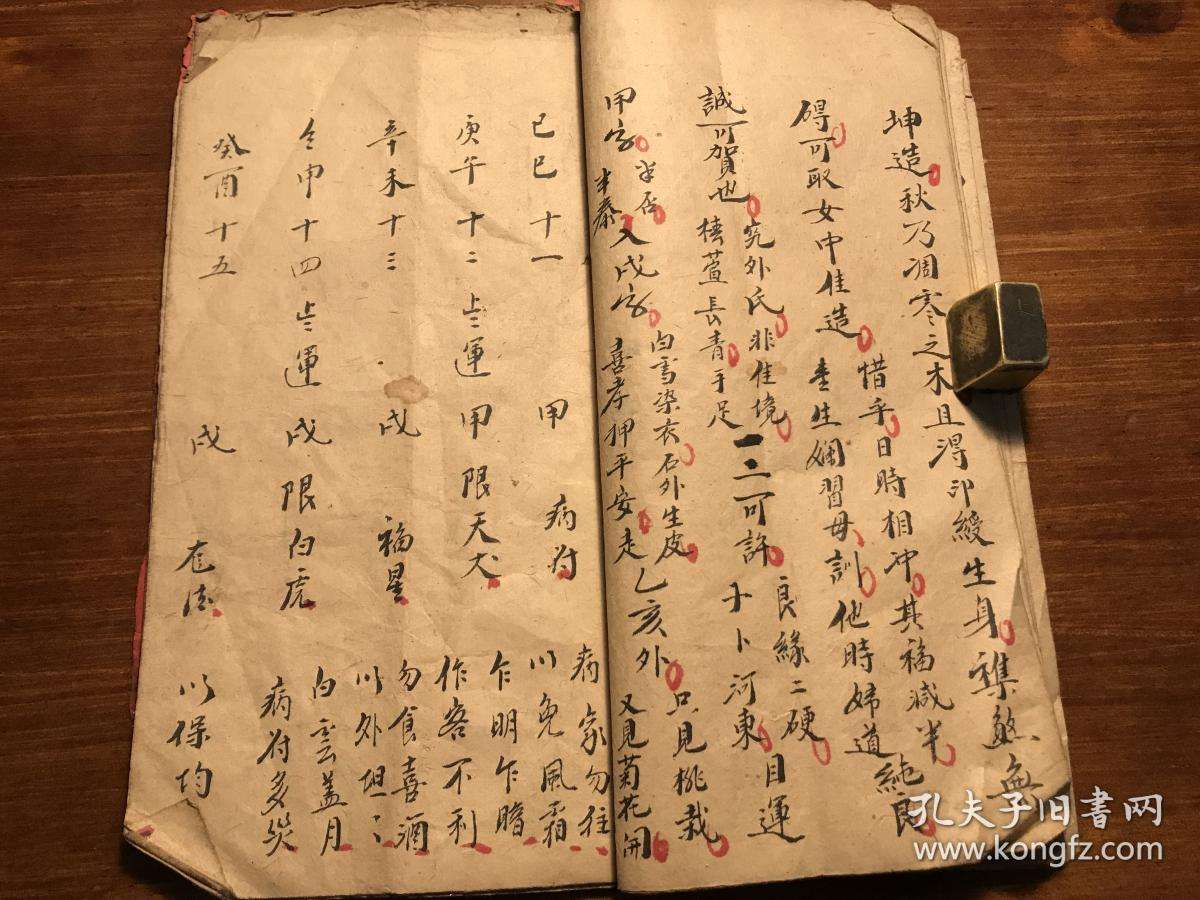 坤造秋乃凋零之木且淂印綬生身襍煞無
碍可取女中佳造惜乎日時相冲其福减半
生嫻習母訓他時婦道純良
誠可賀也究外氏非佳境良緣二硬目運
椿萱長青手足一二可許卜河東
甲字半否入戌字白雪染衣石外生皮只見桃栽
半泰喜孝押平安走乙亥外又見菊花開
己巳十一 甲 病符 病家勿往
以免風霜
庚午十二 上運 甲限天犬 乍明乍暗
作客不利
辛未十三 戌 福星 勿食喜酒
以外坦〻
壬申十四 上運 戌限白虎 白雲盖月
病符多災
癸酉十五 戌 龙德 以保均
孔夫子旧书网
www.kongfz.com